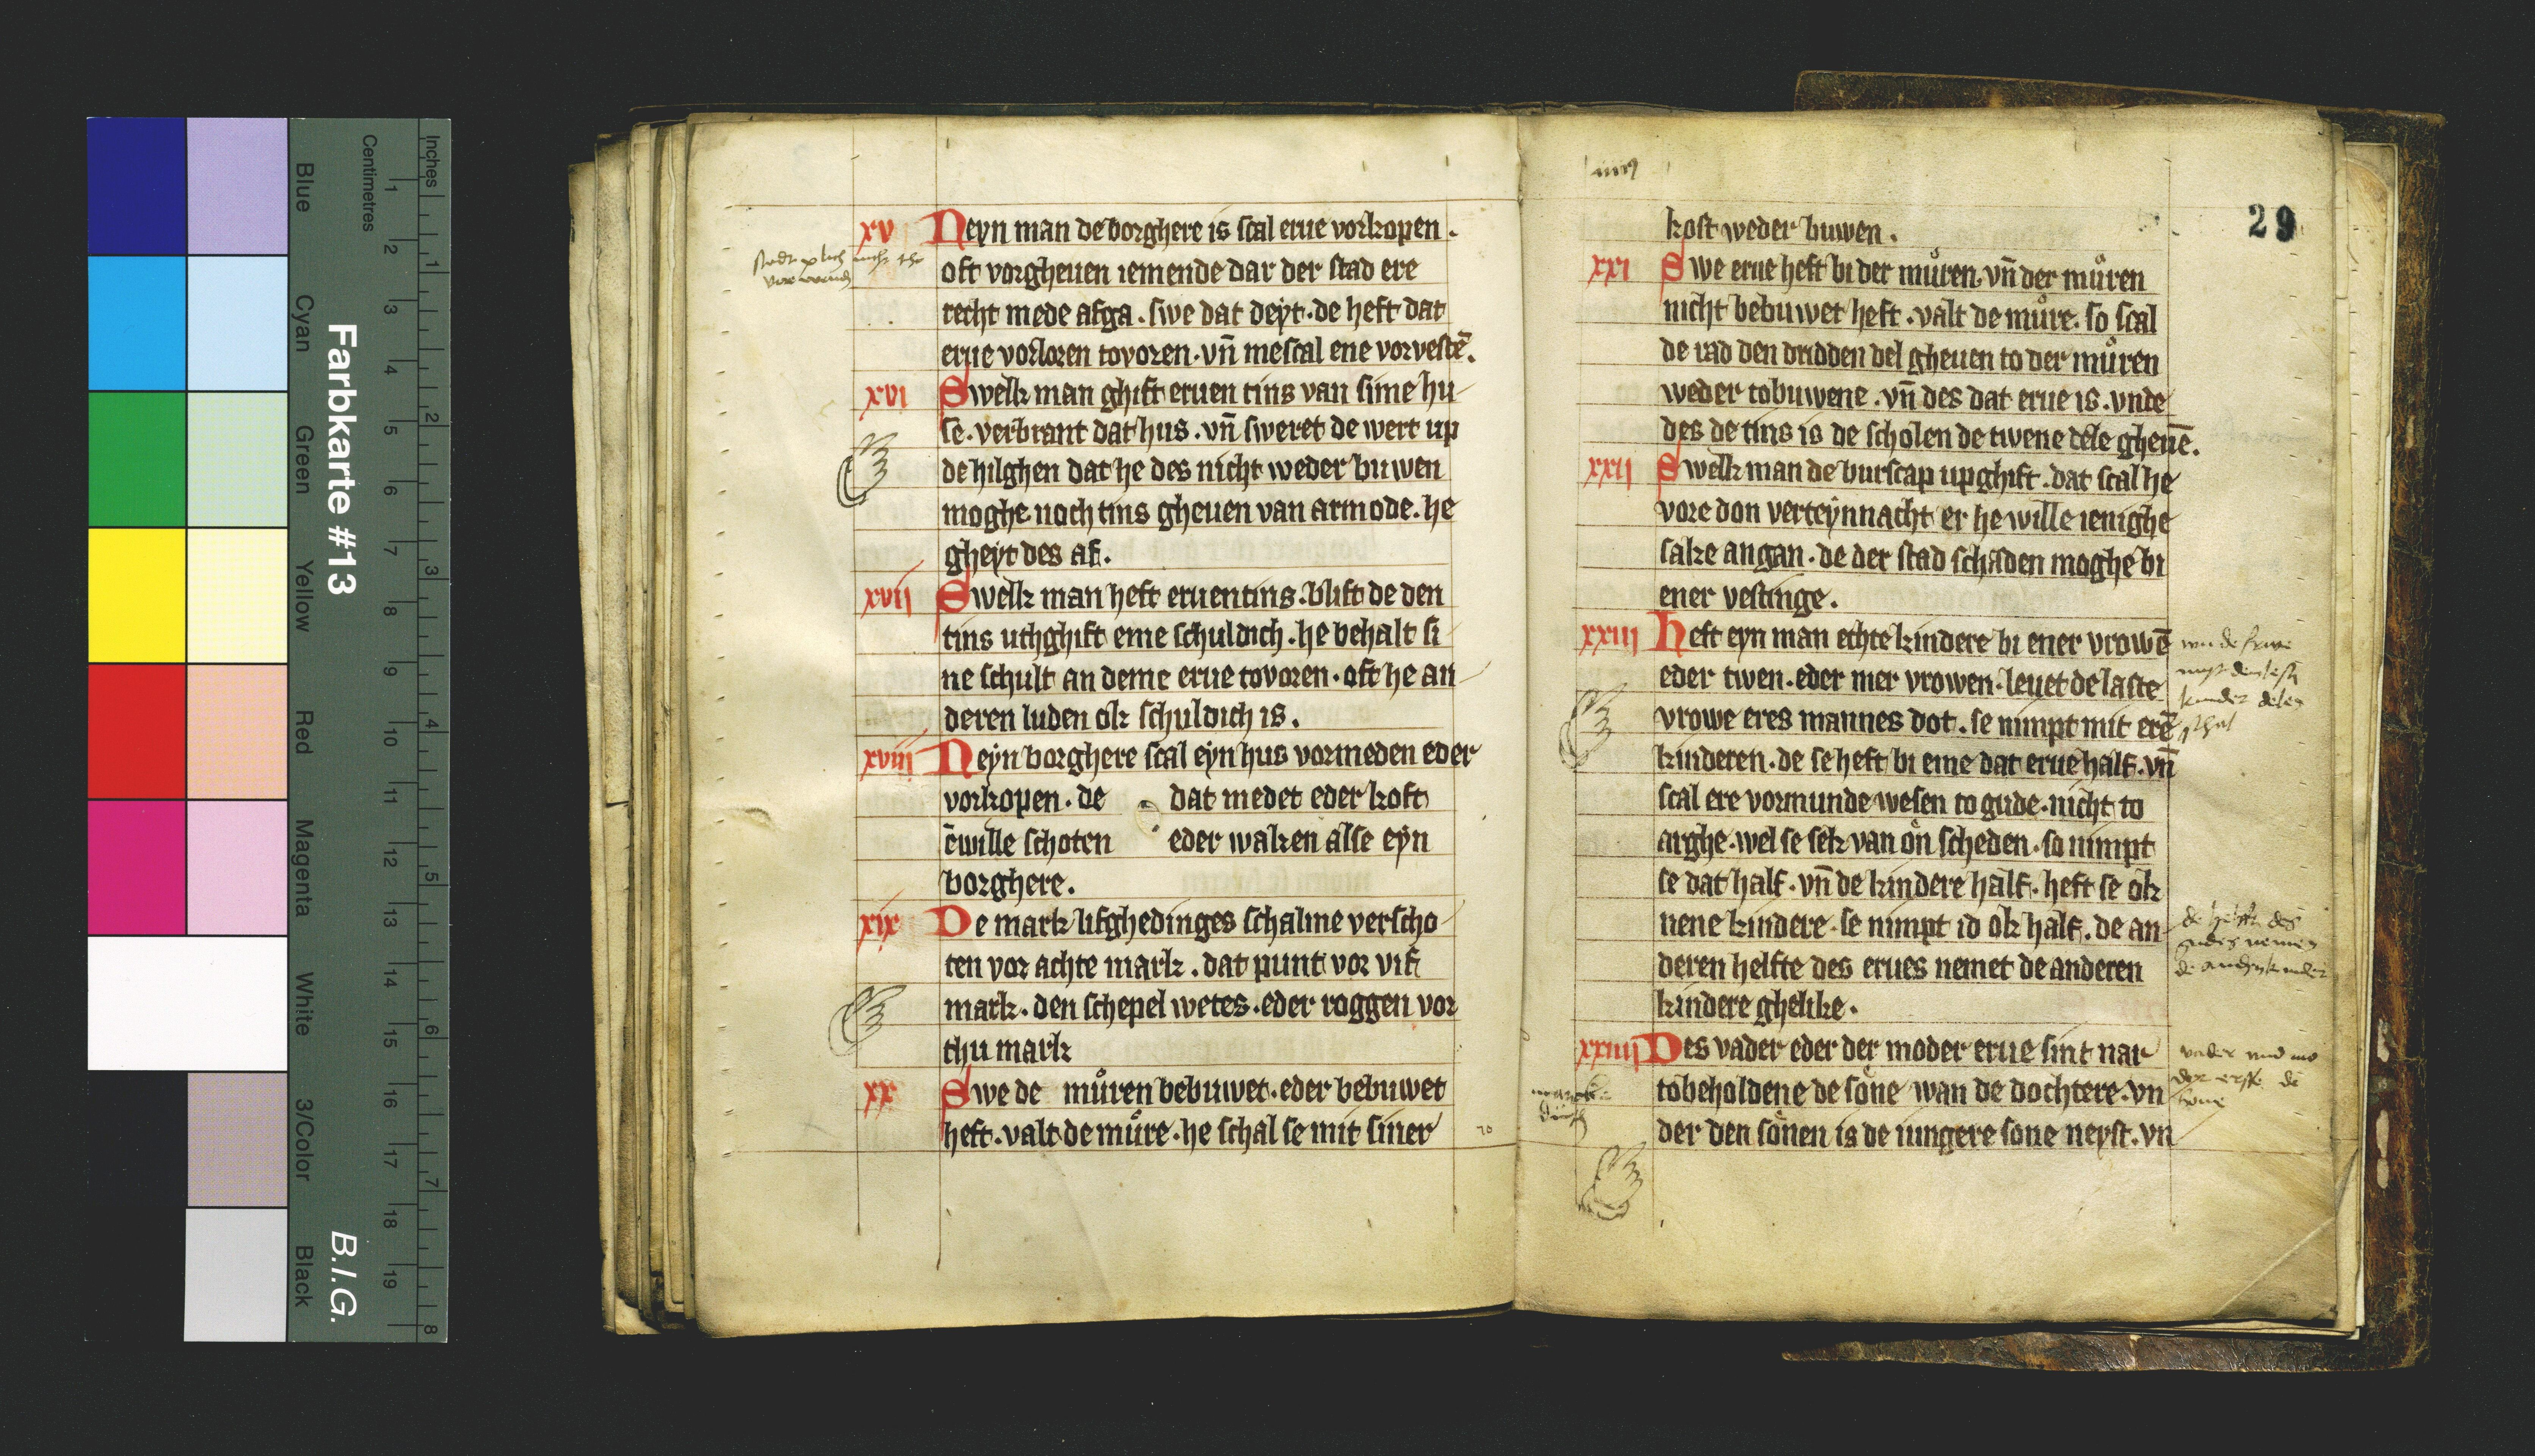 Inches
Centimetres
1 2 3 4 5 6 7 8
1 2 3 4 5 6 7 8 9 10 11 12 13 14 15 16 17 18 19
Farbkarte #13
B.I.G.
Blue
Cyan
Green
Yellow
Red
Magenta
White
3/Color
Black
xv Neyn man de borghere is scal erue vorkopen.
oft vorgheuen iemende dar der stad ere
recht mede afga. swe dat deyt. de heft dat
erue vorloren tovoren. vn̄ me scal ene vorvestē.
xvi Swelk man ghift eruen tins van sime hu
se. verbrant dat hus. vn̄ sweret de wert up
de hilghen dat he des nicht weder buwen
moghe. noch tins gheuen van armode. he
gheyt des af.
xvii Swelk man heft eruentins. blift de den
tins uthghift eme schuldich. he behalt si
ne schult an deme erue tovoren. oft he an
deren luden ok schuldich is.
xviii Neyn borghere scal eyn hus vormeden eder
vorkopen. de dat medet eder koft
ēwille schoten eder waken alse eyn
borghere.
xix De mark lifghedinges schalme verscho
ten vor achte mark. dat punt vor vif
mark. den schepel wetes. eder roggen vor
thu mark
xx Swe de můren bebuwet. eder bebuwet
heft. valt de můre. he schal se mit siner
29
kost weder buwen.
xxi Swe erue heft bi der můren. vn̄ der můren
nicht bebuwet heft. valt de můre. so scal
de rad den dridden del gheuen to der můren
weder tobuwene. vn̄ des dat erue is. vnde
des de tins is de scholen de twene dele gheuē.
xxii Swelk man de burscap upghift. dat scal he
vore don verteynnacht er he wille ienighe
sake angan. de der stad schaden moghe bi
ener vestinge.
xxiii Heft eyn man echte kindere bi ener vrowē
eder twen. eder mer vrowen. leuet de laste
vrowe eres mannes dot. se nimpt mit erē
kinderen. de se heft bi eme dat erue half. vn̄
scal ere vormunde wesen to gude. nicht to
arghe. wel se sek van on scheden. so nimpt
se dat half. vn̄ de kindere half. heft se ok
nene kindere. se nimpt id ok half. de an
deren helfte des erues nemet de anderen
kindere ghelike.
xxiiii Des vader eder der moder erue sint nar
tobeholdene de sone wan de dochtere. vn
der den sonen is de iungere sone neyst. vn